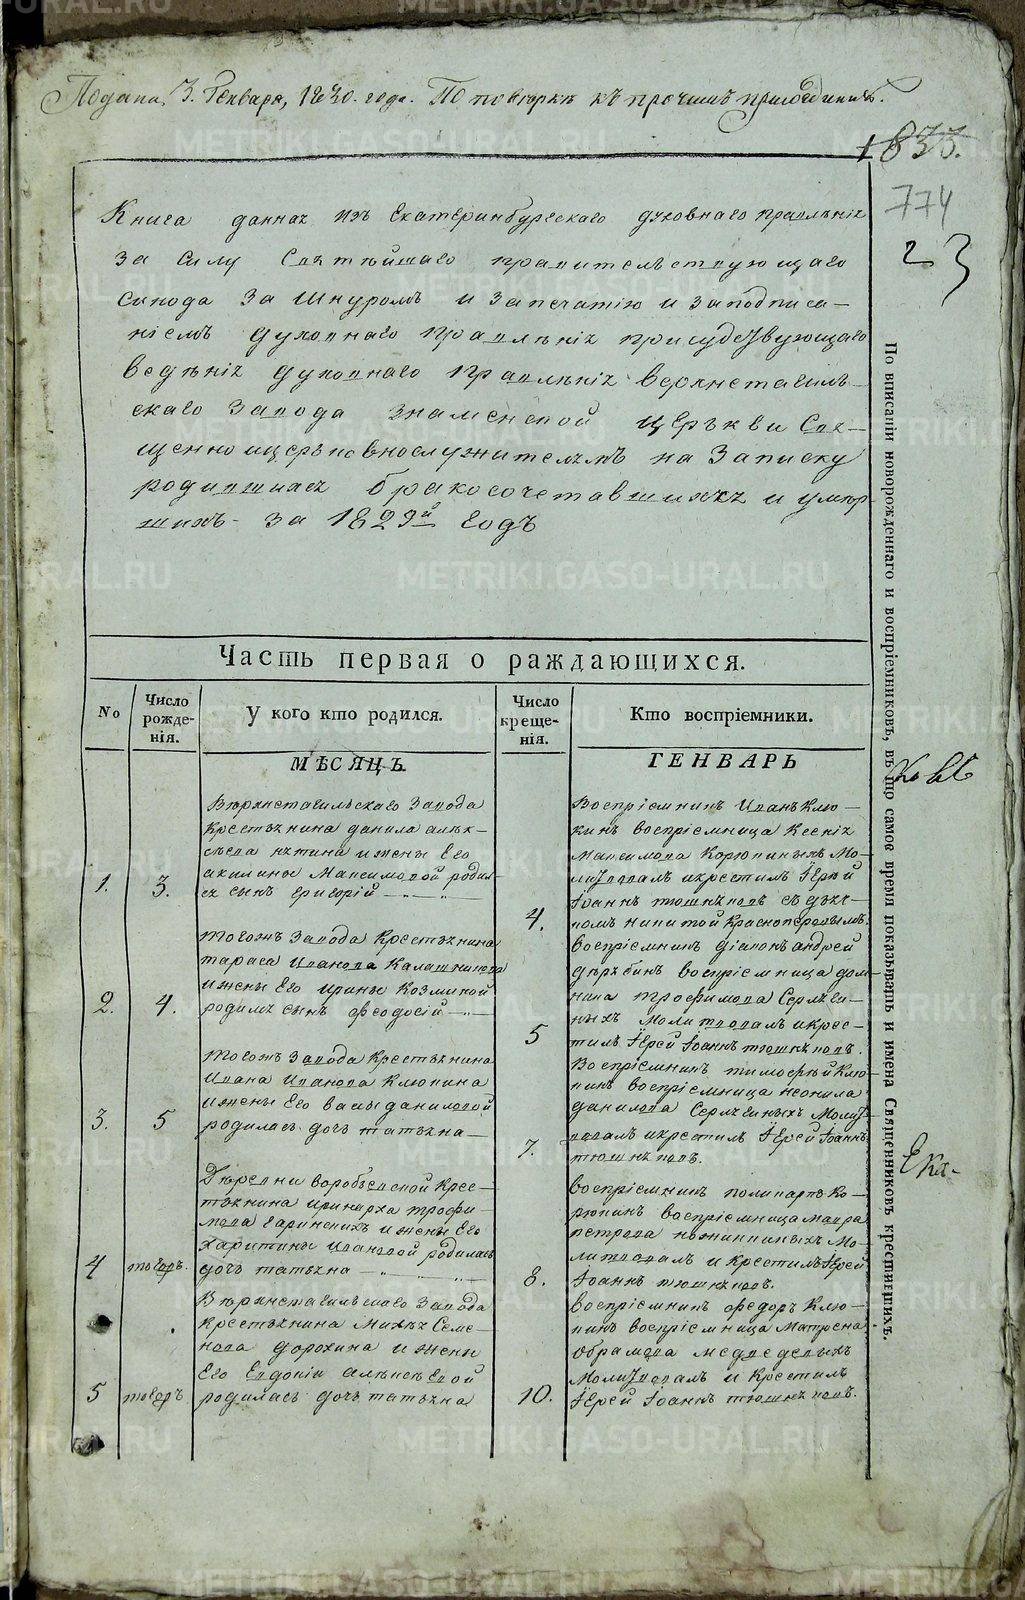 Подана, 3. Генваря, 1830. года. По поверке къ прочимъ приобщить.
1833.
774
23
Книга данная изъ Екатеринбургскаго духовнаго правленія
за силу Святѣйшаго правительствующаго
синода за шнуромъ и запечатію и заподписа-
ніемъ духовнаго правленія присудствующаго
ведѣнія духовнаго правленія верхнетагиль-
скаго завода знаменской церькви Свя-
щенно и церьковнослужителямъ на записку
родившихся бракосочетавшихся и умер-
шихъ за 1829й годъ
Часть первая о раждающихся.
No
Число рожде-нія.
У кого кто родился.
Число креще-нія.
Кто воспріемники.
МѢСЯЦЪ
ГЕНВАРЬ
1.
3.
Верхнетагильскаго завода
крестьянина данила алек-
сѣева и жены Его
акилины Максимовой родил-
ся сынъ григорій
4.
Воспріемникъ Иванъ Клю-
кинъ воспріемница Ксенія
Максимова Корюкиныхъ Мо-
литвовалъ и крестилъ Іерей
Іоаннъ тюшняковъ съ дьяч-
комъ никитой Красноперовымъ.
2.
4.
тогожъ завода Крестьянина
тараса Иванова Калашникова
и жены Его Ирины Козминой
родился сынъ феодосій
5
Воспріемникъ діаконъ андрей
дерябинъ воспріемница дом-
нина трофимова Серебен-
ныхъ молитвовалъ и крес-
тилъ Іерей Іоаннъ тюшняковъ.
3.
5
тогожъ завода крестьянина
Ивана Иванова Клюкина
и жены Его вассы даниловой
родилась дочь татьяна
7.
Воспріемникъ тимофѣй Клю-
кинъ воспріемница неонила
данилова молит-
вовалъ и крестилъ Іерей Іоаннъ
тюшняковъ.
4
тогоръ.
Деревни воробьевской крес-
тьянина иринарха трофи-
мова гаринскихъ и жены Его
Харитины Ивановой родилась
дочь татьяна
8.
Воспріемникъ поликарпъ Ко-
рюкинъ воспріемница мавра
петрова Мо-
литвовалъ и крестилъ Іерей
Іоаннъ тюшняковъ.
5
тогоръ
Верхнетагильскаго завода
крестьянина Михея Семе-
нова дорохина и жены
Его Евдокіи алексѣевой
родилась дочь татьяна
10.
воспріемникъ федоръ Клю-
кинъ воспріемница Матрена
обрамова медведевыхъ
молитвовалъ и крестилъ
Іерей Іоаннъ тюшняковъ.
По вписаніи новорожденнаго и воспріемниковъ, въ що самое время показывать и имена Священниковъ крестившихъ.
Ека-
METRIKI.GASO-URAL.RU